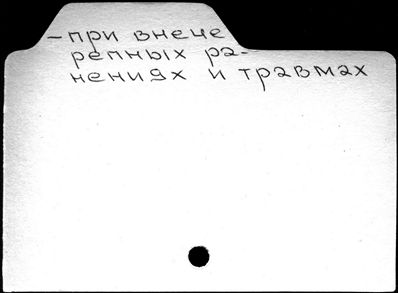 - при внече
репных ра-
нениях и травмах